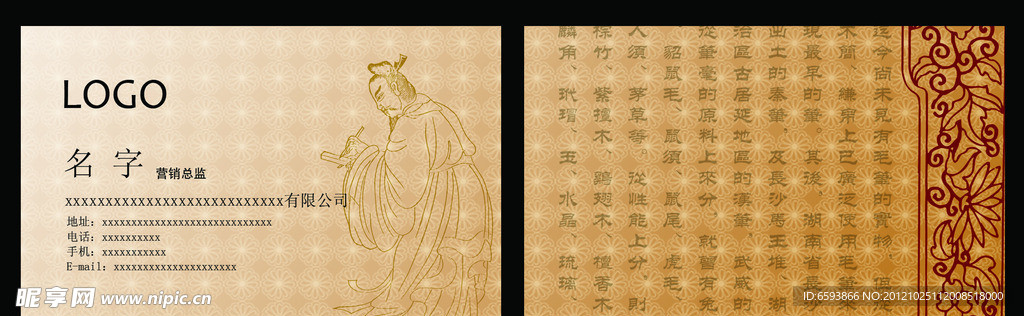 LOGO
名 字 营销总监
xxxxxxxxxxxxxxxxxxxxxxxxxxx有限公司
地址：xxxxxxxxxxxxxxxxxxxxxxxxxxxxx
电话：xxxxxxxxxx
手机：xxxxxxxxxxx
E-mail：xxxxxxxxxxxxxxxxxxxxx
迄今尚未見有毛筆的實物，但從
木簡、縑帛上已廣泛使用毛筆來
現最早的筆。其後，湖南省長
出土的秦筆，及長沙馬王堆、湖
治區古居延地區的漢筆、武威的
從筆毫的原料上來分，就曾有兔
、貂鼠毛、鼠須、鼠尾、虎毛、
人須、茅草等。從性能上分，則
棕竹、紫檀木、鷄翅木、檀香木
麟角、玳瑁、玉、水晶、琉璃、
昵享网 www.nipic.cn
ID:6593866 NO:20121025112008518000